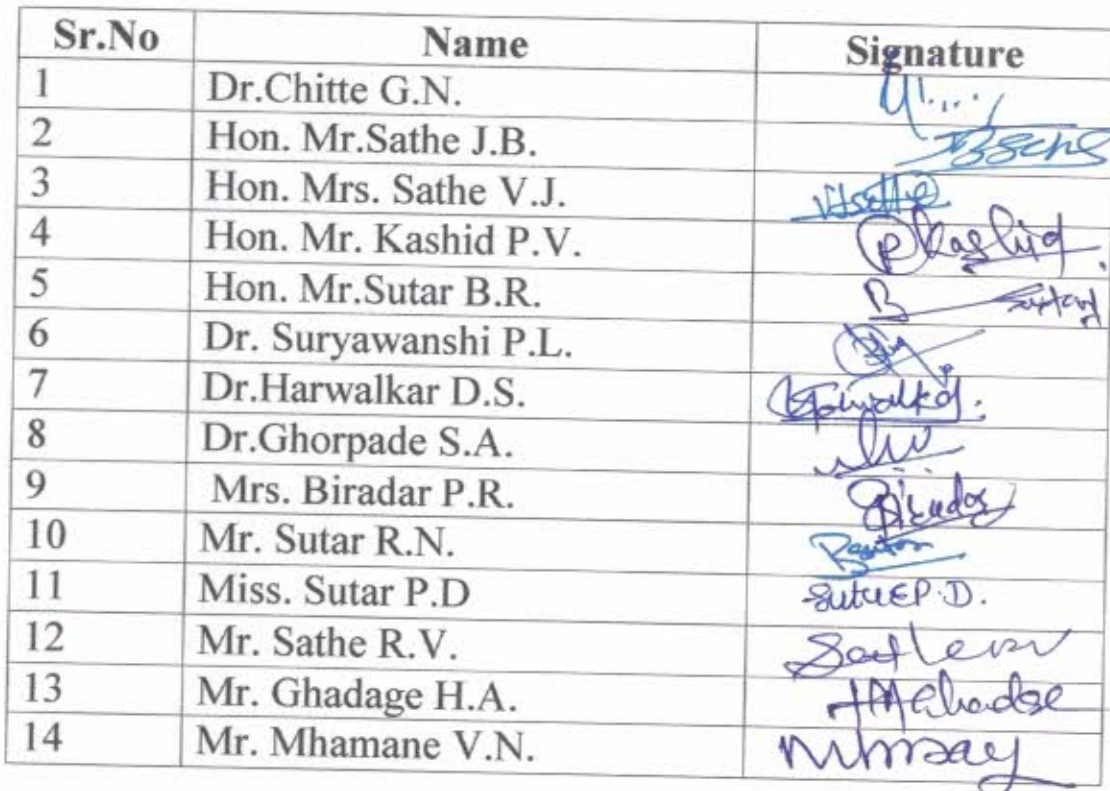 Sr.No Name Signature
1 Dr.Chitte G.N.
2 Hon. Mr.Sathe J.B.
3 Hon. Mrs. Sathe V.J.
4 Hon. Mr. Kashid P.V. PKashid
5 Hon. Mr.Sutar B.R. B
6 Dr. Suryawanshi P.L.
7 Dr.Harwalkar D.S.
8 Dr.Ghorpade S.A.
9 Mrs. Biradar P.R.
10 Mr. Sutar R.N.
11 Miss. Sutar P.D P.D.
12 Mr. Sathe R.V.
13 Mr. Ghadage H.A.
14 Mr. Mhamane V.N.